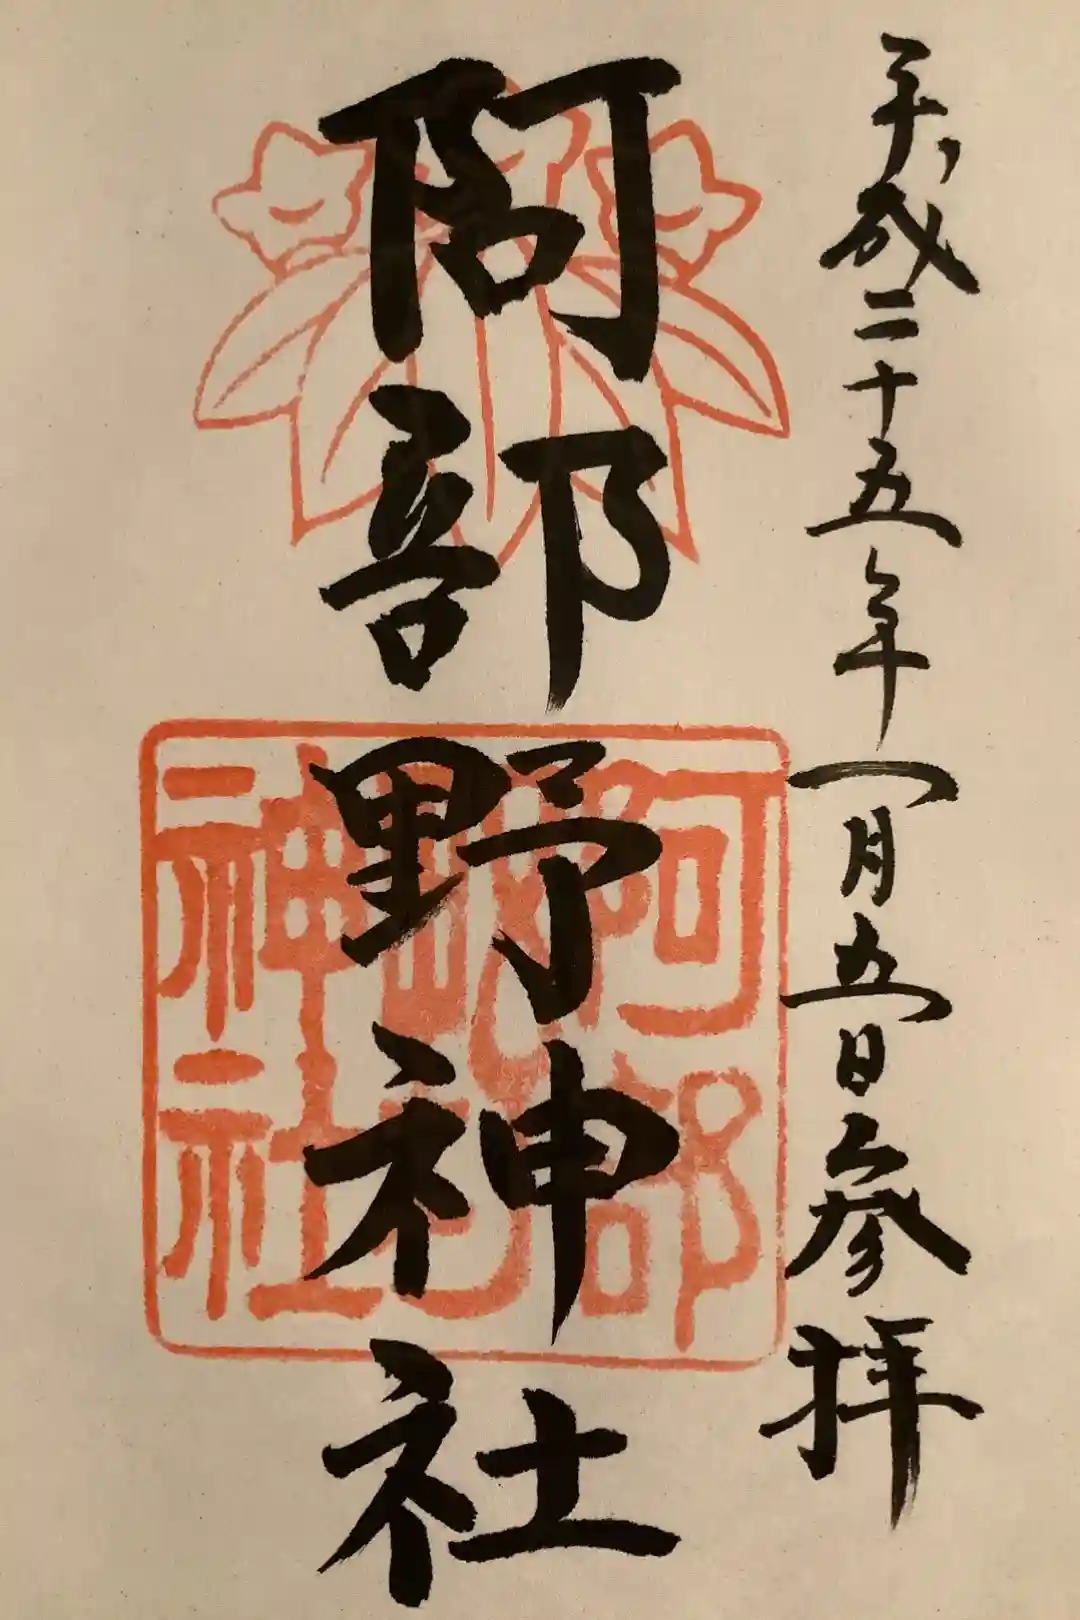 平成二十五年一月五日参拝
阿部野神社
阿部
野
神社